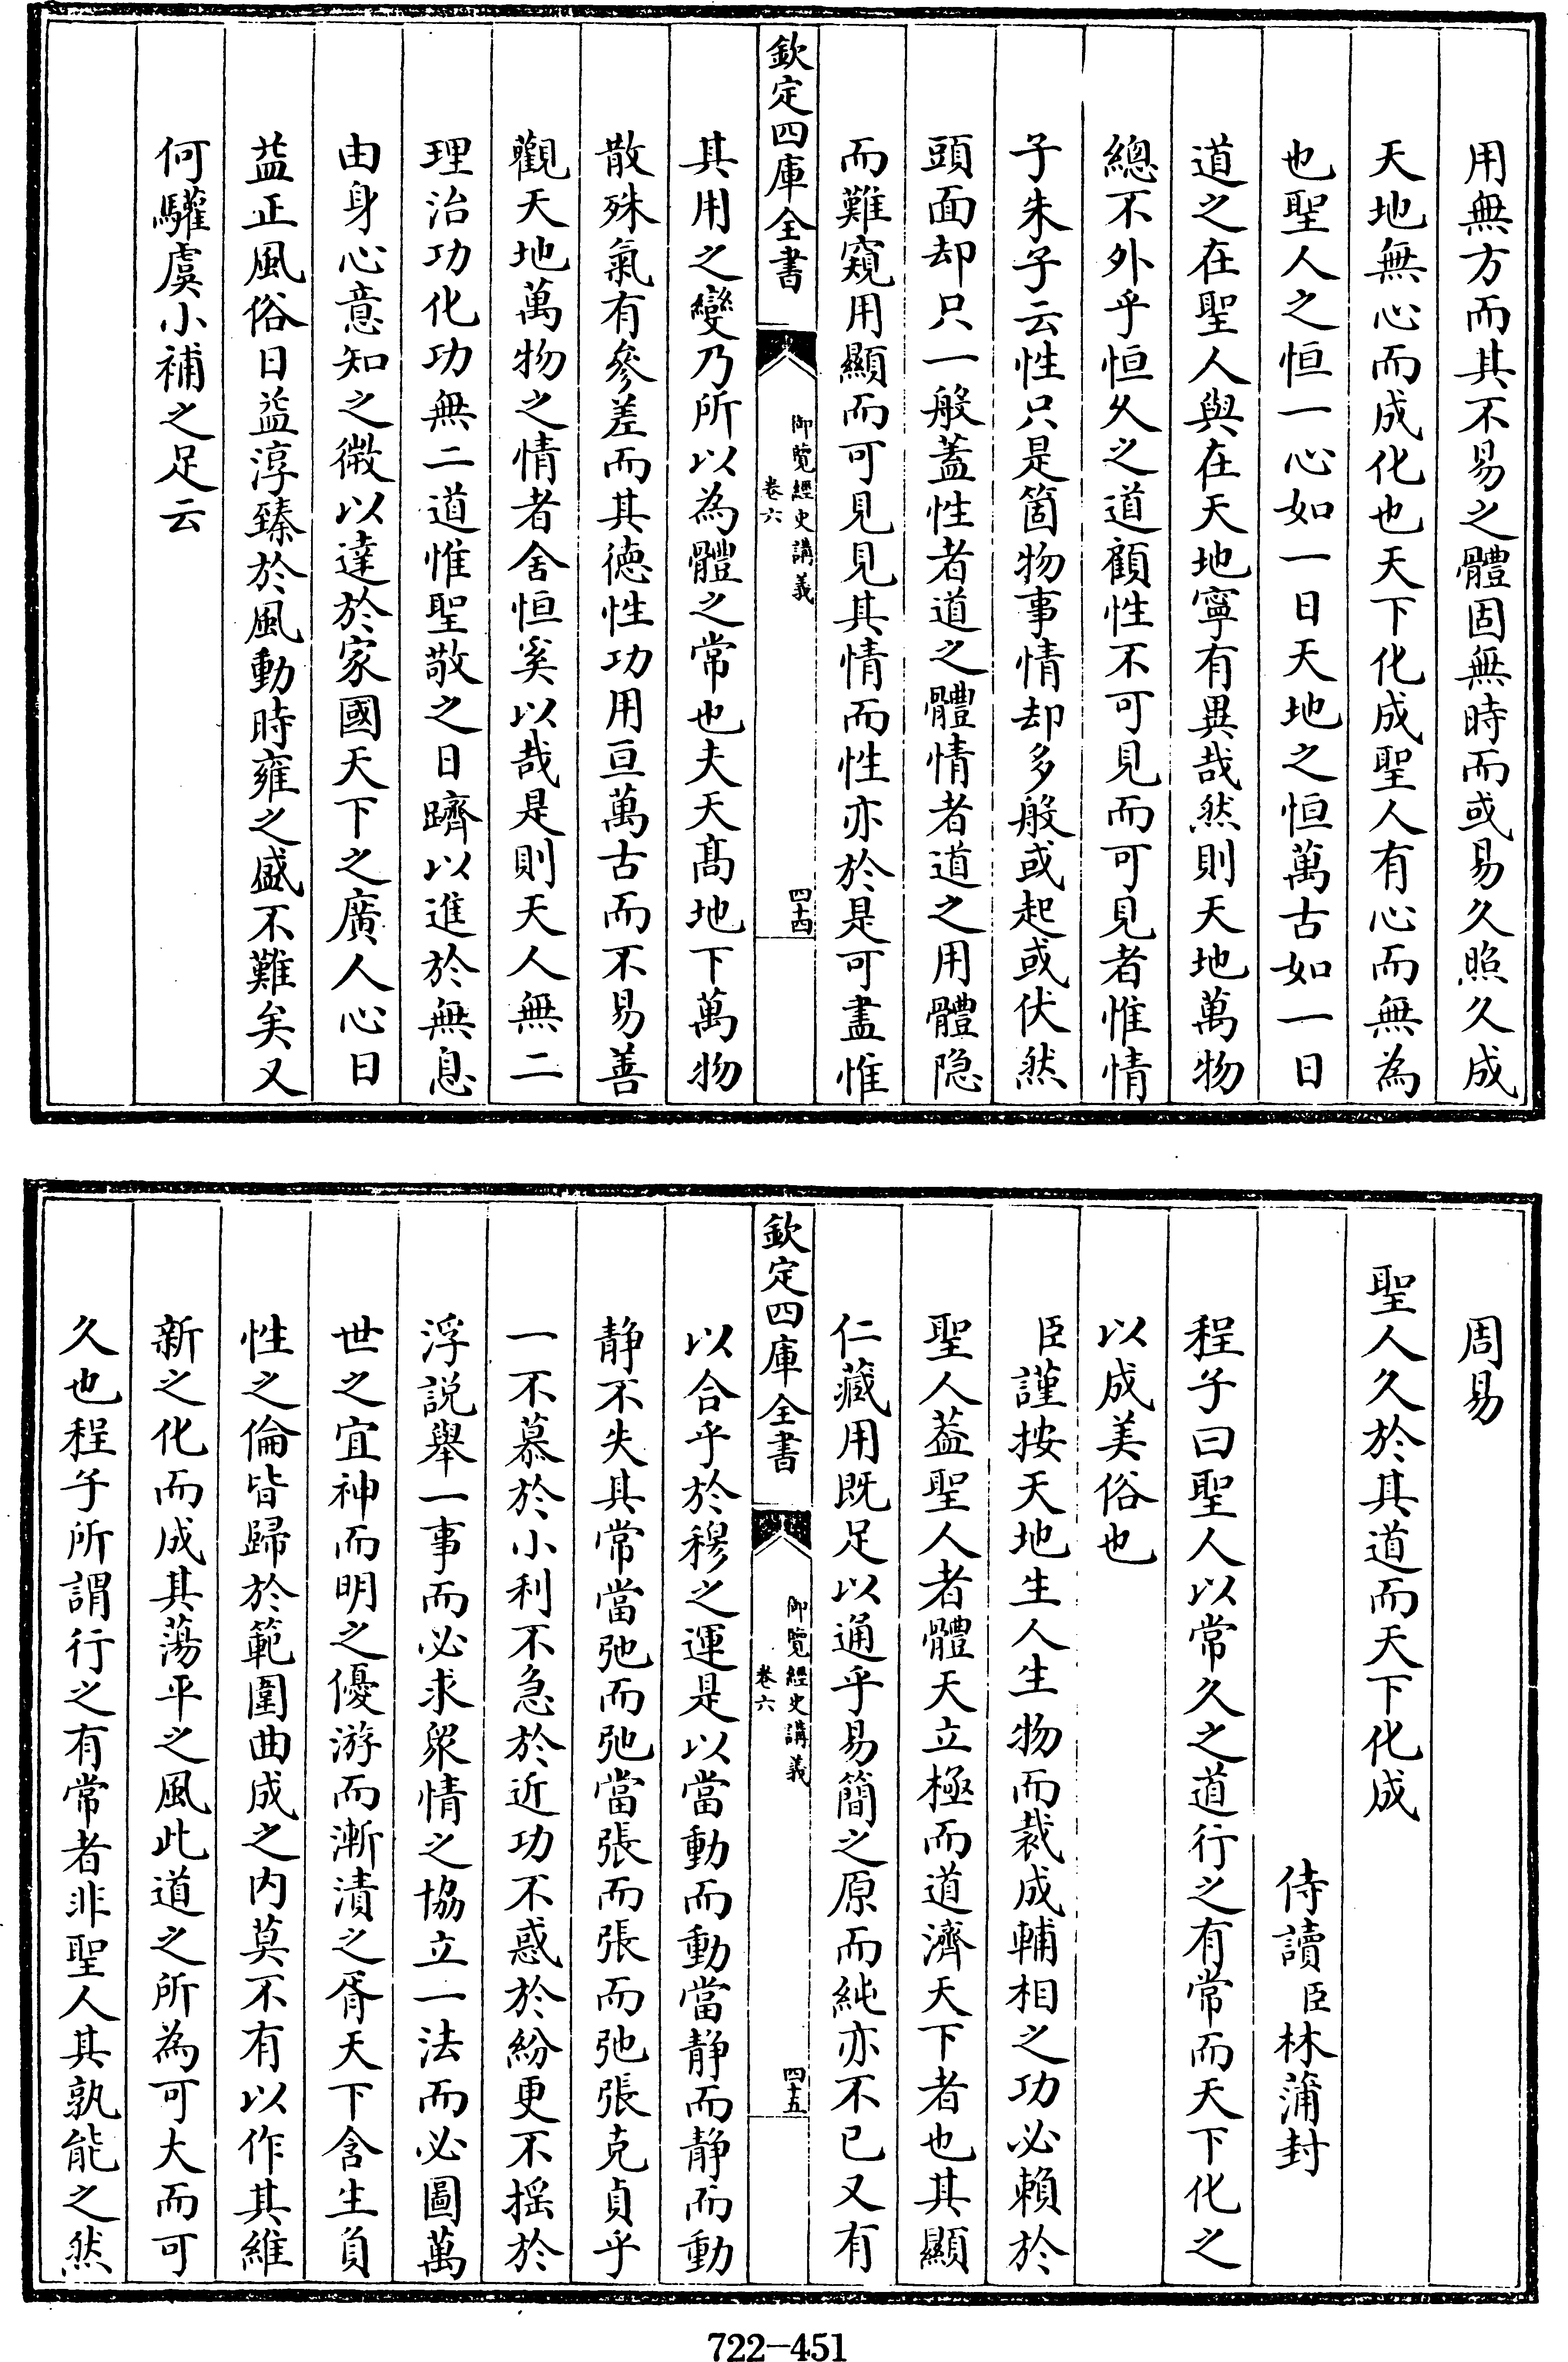 用無方而其不易之體固無時而或易久照久成
天地無心而成化也天下化成聖人有心而無為
也聖人之恒一心如一日天地之恒萬古如一日
道之在聖人與在天地寧有異哉然則天地萬物
總不外乎恒久之道顧性不可見而可見者惟情
子朱子云性只是箇物事情却多般或起或伏然
頭面却只一般蓋性者道之體情者道之用體隱
而難窺用顯而可見見其情而性亦於是可盡惟
欽定四庫全書
御覽經史講義
卷六
四十四
其用之變乃所以為體之常也夫天高地下萬物
散殊氣有參差而其德性功用亘萬古而不易善
觀天地萬物之情者舍恒奚以哉是則天人無二
理治功化功無二道惟聖敬之日躋以進於無息
由身心意知之微以達於家國天下之廣人心日
益正風俗日益淳臻於風動時雍之盛不難矣又
何驩虞小補之足云
周易
聖人久於其道而天下化成
侍讀臣林蒲封
程子曰聖人以常久之道行之有常而天下化之
以成美俗也
臣謹按天地生人生物而裁成輔相之功必賴於
聖人葢聖人者體天立極而道濟天下者也其顯
仁藏用既足以通乎易簡之原而純亦不已又有
欽定四庫全書
御覽經史講義
卷六
四十五
以合乎於穆之運是以當動而動當静而静而動
静不失其常當弛而弛當張而張而弛張克貞乎
一不慕於小利不急於近功不惑於紛更不搖於
浮説舉一事而必求衆情之協立一法而必圖萬
世之宜神而明之優游而漸漬之胥天下含生負
性之倫皆歸於範圍曲成之内莫不有以作其維
新之化而成其蕩平之風此道之所為可大而可
久也程子所謂行之有常者非聖人其孰能之然
722-451